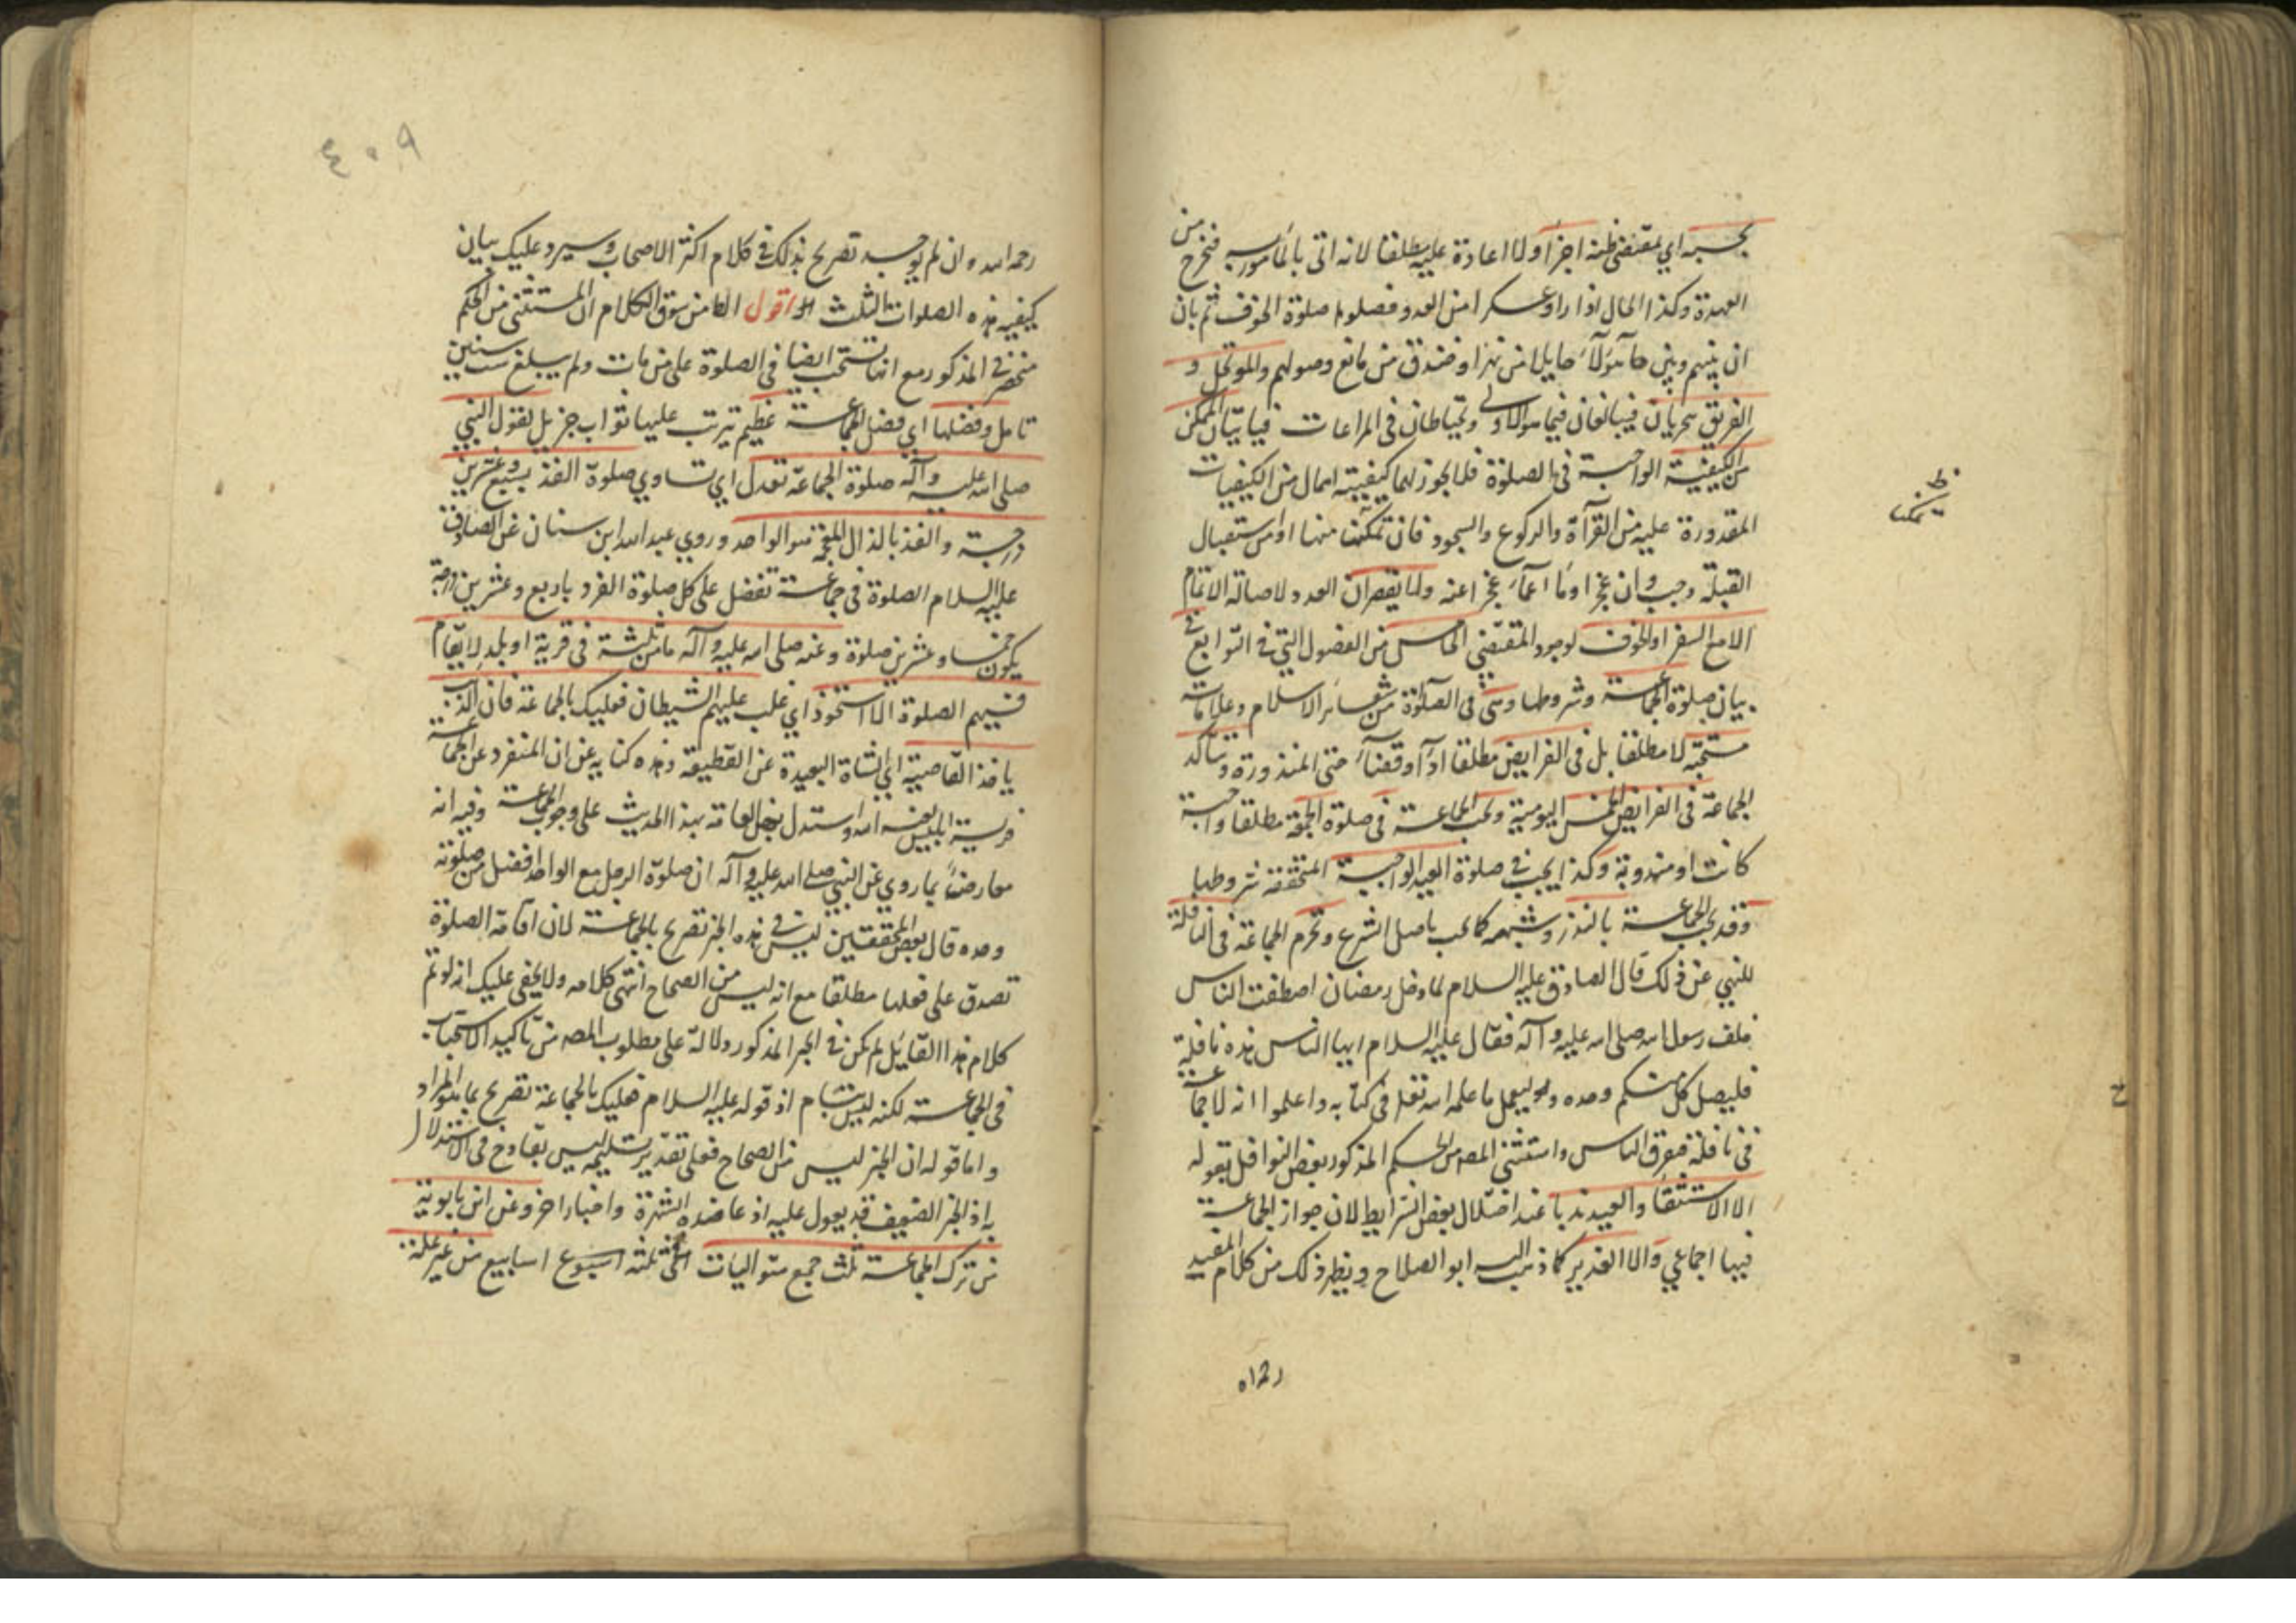 بحسبه اي بمقتضى ظنه اجزأ ولا اعادة عليه مطلقا لانه اتى بالمأمور به فيخرج من
العهدة وكذا الحال اذا راوعسكرا من العدو فصلوا صلوة الخوف ثم بان
ان بينهم وبين هآؤلآء حايلا من نهر او خندق من مانع وصولهم والموتحل و
الغريق يوميان فيبالغان فيما هو الاولى ويحتاطان في المراعات فياتيان الممكن
من الكيفية الواجبة في الصلوة فلا يجوز لهما كيفيته اهمال من الكيفيات
المقدورة عليه من القرآة والركوع والسجود فان تمكنت منها او من استقبال
القبلة وجب وان عجزا ومآ ايمآء عجزا عنه ولا يقصران العدد لاصالة الاتمام
الا مع السفر او الخوف لوجود المقتضي الخامس من الفصول التي في التوابع في
بيان صلوة الجماعة وشروطها وهي في الصلوة من شعائر الاسلام وعلاماته
مستحبة لا مطلقا بل في الفرايض مطلقا ادآء وقضآء حتى المنذورة وتتأكد
الجماعة في الفرايض الخمس اليومية وتجب الجماعة في صلوة الجمعة مطلقا واجبة
كانت او مندوبة وكذا يجب في صلوة العيد الواجبة المتحققة شروطها
وقد يجب الجماعة بالنذر وشبهه كما تجب باصل الشرع وتحرم الجماعة في النافلة
للنهي عن ذلك قال الصادق عليه السلام لما دخل رمضان اصطفت الناس
خلف رسول الله صلى الله عليه وآله فقال عليه السلام ايها الناس هذه نافلة
فليصل كل منكم وحده وليعمل ما علمه الله تعلى في كتابه واعلموا انه لا جماعة
في نافلة فتفرق الناس واستثنى المصـ من الحكم المذكور بعض النوافل بقوله
الا الاستسقا والعيد ندبا عند اختلال بعض الشرايط لان جواز الجماعة
فيها اجماعي والا الغدير كما ذهب اليه ابو الصلاح ويظهر ذلك من كلام المفيد
ظ
تمكنا
رحمه الله
٤٠٩
رحمه الله وان لم يوجد تصريح بذلك في كلام اكثر الاصحاب وسيرد عليك بيان
كيفية هذه الصلوات الثلث اقول الظا من سوق الكلام ان المستثنى من الحكم
منحصر في المذكور مع انها تستحب ايضا في الصلوة على من مات ولم يبلغ ست سنين
تامل وفضلها اي فضل الجماعة عظيم يترتب عليها ثواب جزيل لقول النبي
صلى الله عليه وآله صلوة الجماعة تعدل اي تساوي صلوة الفذ بسبع وعشرين
درجة والفذ بالذال المعجمة هو الواحد وروي عبد الله ابن سنان عن الصادق
عليه السلام الصلوة في جماعة تفضل على كل صلوة الفرد باربع وعشرين درجة
يكون خمسا وعشرين صلوة وعنه صلى الله عليه وآله ما من ثلثة في قرية او بلد لا يقام
فيهم الصلوة الا استحوذ اي غلب عليهم الشيطان فعليك بالجماعة فان الذئب
ياخذ القاصية اي الشاة البعيدة عن القطيعة وهذه كناية عن ان المنفرد عن الجماعة
فريسة ابليس لعنه الله واستدل بعض العامة بهذا الحديث على وجوب الجماعة وفيه انه
معارض بما روي عن النبي صلى الله عليه وآله ان صلوة الرجل مع الواحد افضل من صلوته
وحده قال بعض المحققين ليس في هذه الخبر تصريح بالجماعة لان اقامة الصلوة
تصدق على فعلها مطلقا مع انه ليس من الصحاح انتهى كلامه ولا يخفى عليك انه لو تم
كلام هذا القايل لم يكن في الخبر المذكور دلالة على مطلوب المصـ من تاكيد الاستحباب
في الجماعة لكنه ليس بتام اذ قوله عليه السلام فعليك بالجماعة تصريح بما هو المراد
واما قوله ان الخبر ليس من الصحاح فعلى تقدير تسليمه ليس بقادح في الاستدلال
به اذ الخبر الضعيف قد يعول عليه اذ عاضده الشهرة واخبار اخر وعن ابن بابويه
من ترك الجماعة ثلث جمع متواليات اي ثلثة اسبوع اسابيع من غير علة